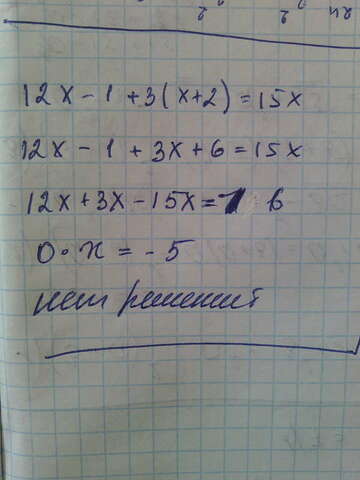 12x - 1 + 3(x+2) = 15x
12x - 1 + 3x + 6 = 15x
12x + 3x - 15x = 1 6
0 · x = - 5
нет решений